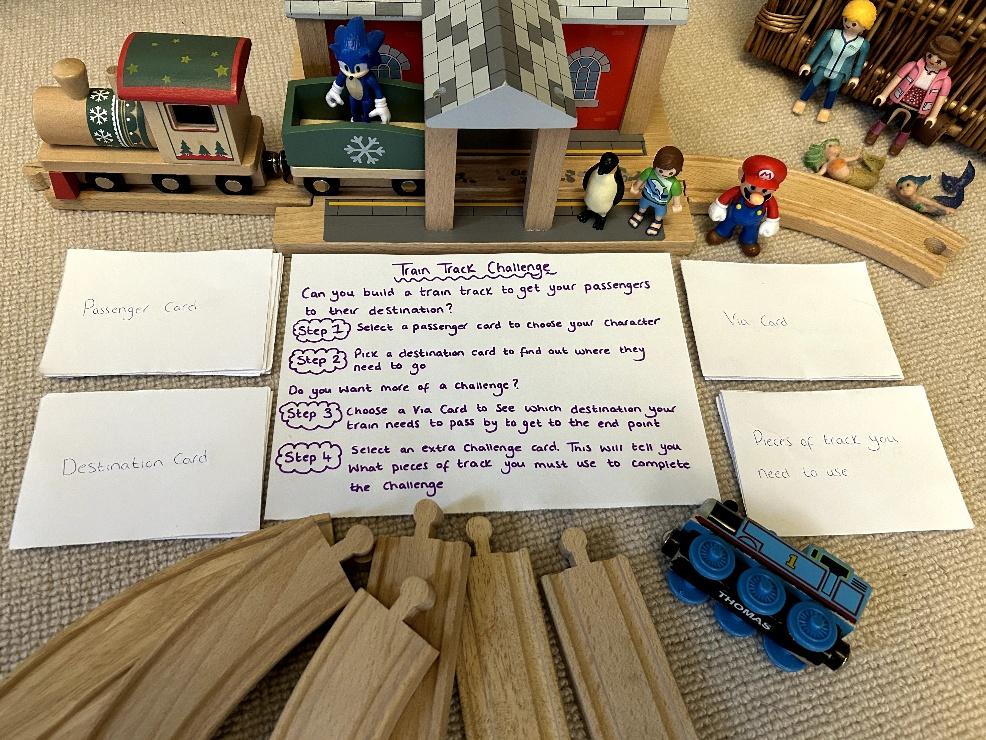 Train Track Challenge
Can you build a train track to get your passengers
to their destination?
Step 1 Select a passenger card to choose your character
Step 2 Pick a destination card to find out where they
need to go
Do you want more of a challenge?
Step 3 Choose a Via Card to see which destination your
train needs to pass by to get to the end point
Step 4 Select an extra challenge card. This will tell you
what pieces of track you must use to complete
the challenge
Passenger Card
Via Card
Destination Card
Pieces of track you
need to use
1
THOMAS
M